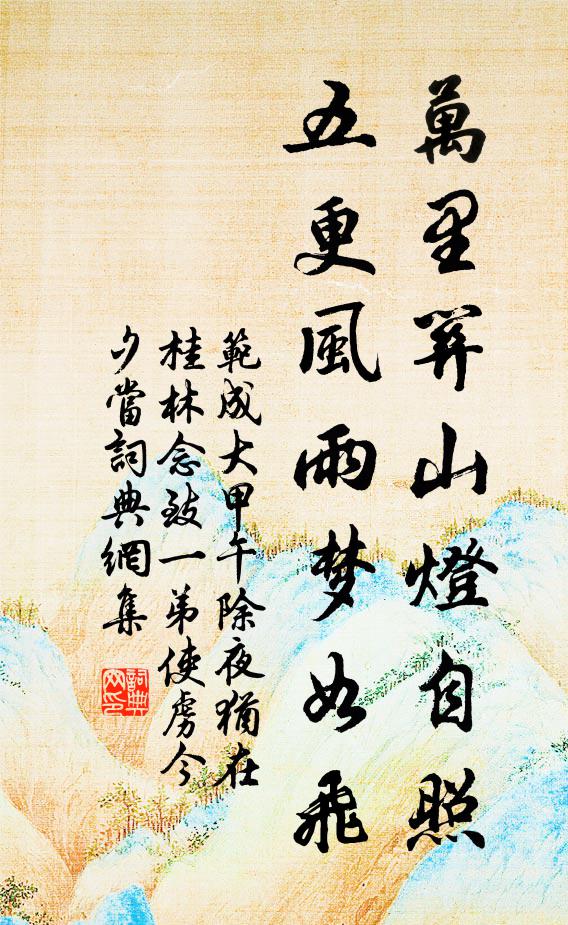 萬里關山燈自照
五更風雨梦如飛
範成大甲午除夜猶在
桂林念致一弟使虜今
夕當詞典網集
詞典
网印